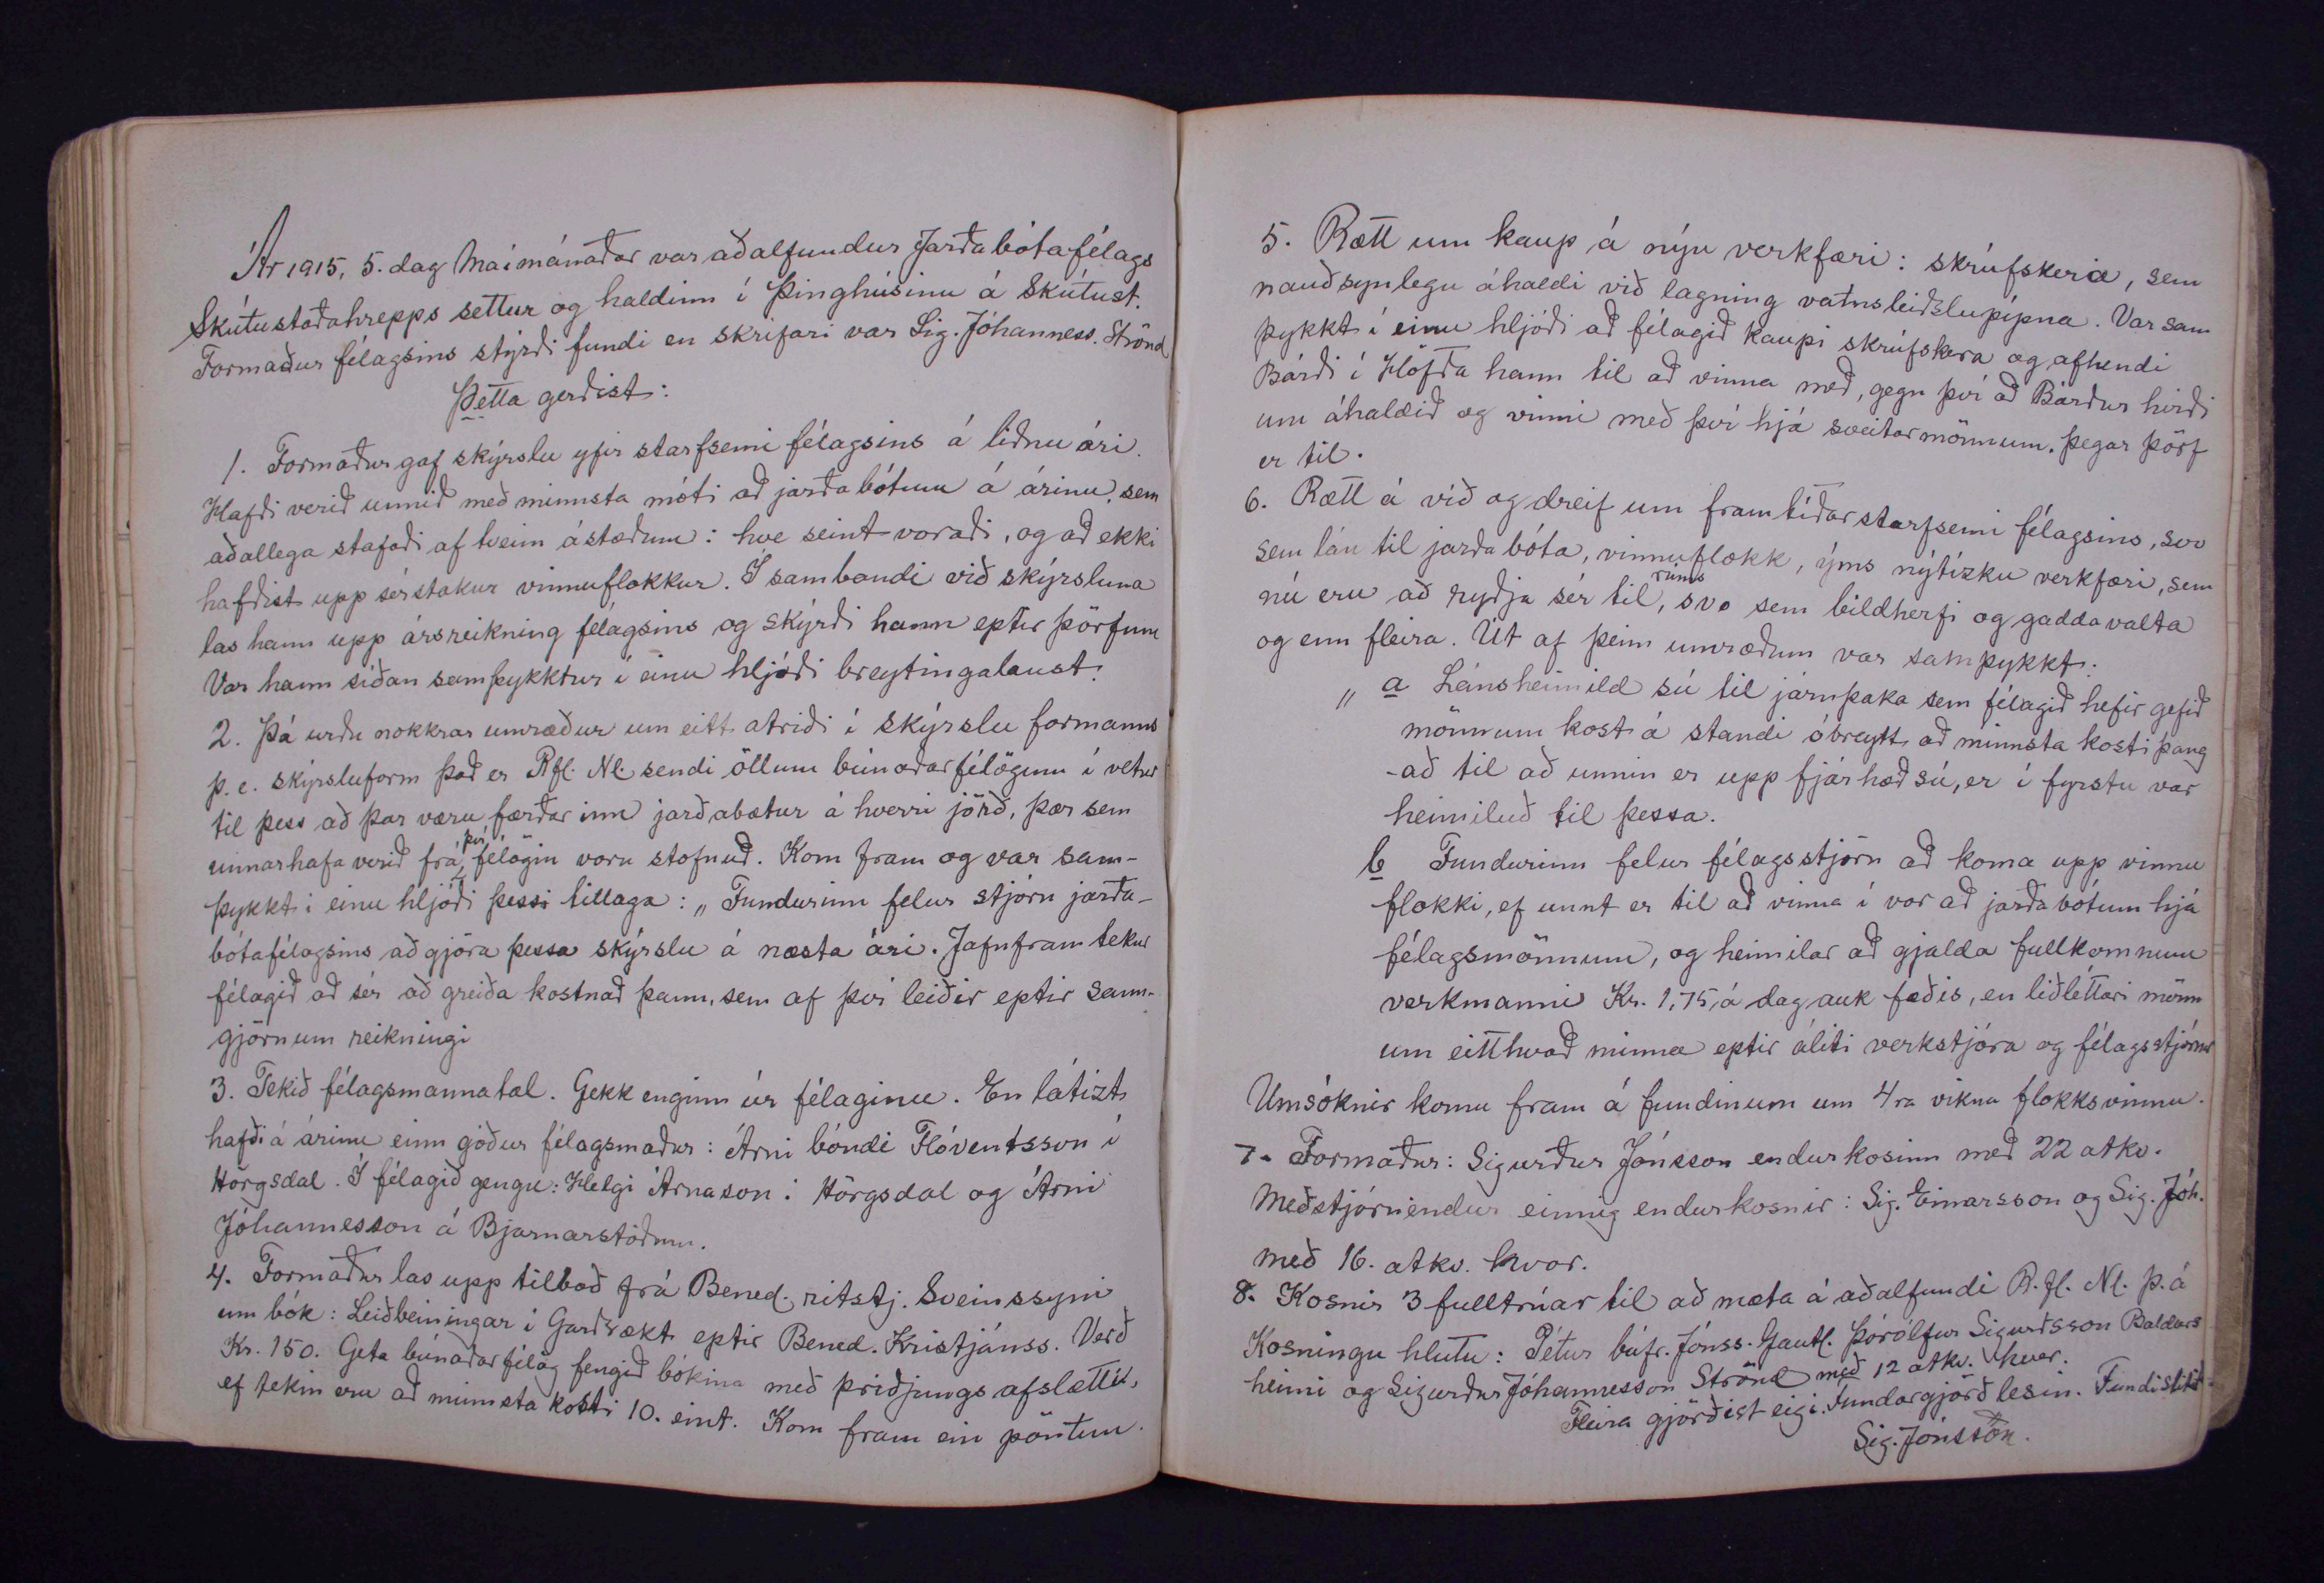 Ár 1915, 5. dag Maímánaðar var aðalfundur Jarðabótafélags
Skútustaðahrepps settur og haldinn í Þinghúsinu á Skútust.
Formaður félagsins stýrði fundi en skrifari var Sig. Jóhanness. Strönd
Þetta gerðist:
1. Formaður gaf skýrslu yfir starfsemi félagsins á liðnu ári.
Hafði verið unnið með minnsta móti að jarðabótum á árinu, sem
aðallega stafaði af tveim ástæðum: hve seint voraði, og að ekki
hafðist upp sérstakur vinnuflokkur. Í sambandi við skýrsluna
las hann upp ársreikning félagsins og skýrði hann eptir þörfum
Var hann síðan samþykktur í einu hljóði breytingalaust.
2. Þá urðu nokkrar umræður um eitt atriði í skýrslu formanns
þ. e. skýrsluform það er Rfl. Nl. sendi öllum búnaðarfélögum í vetur
til þess að þar væru færðar inn jarðabætur á hverri jörð, þær sem
unnar hafa verið frá því félögin voru stofnuð. Kom fram og var sam-
þykkt í einu hljóði þessi tillaga: „Fundurinn felur stjórn jarða-
bótafélagsins að gjöra þessa skýrslu á næsta ári. Jafnframt tekur
félagið að sér að greiða kostnað þann, sem af því leiðir eptir sann-
gjörnum reikningi
3. Tekið félagsmannatal. Gekk enginn úr félaginu. En látizt
hafði á árinu einn góður félagsmaður: Árni bóndi Flóventsson í
Hörgsdal. Í félagið gengu: Helgi Árnason í Hörgsdal og Árni
Jóhannesson á Bjarnarstöðum.
4. Formaður las upp tilboð frá Bened. ritstj. Sveinssyni
um bók: Leiðbeiningar í Garðrækt eptir Bened. Kristjánss. Verð
Kr. 150. Geta búnaðarfélög fengið bókina með þriðjungs afslætti,
ef tekin eru að minnsta kosti 10. eint. Kom fram ein pöntun.
5. Rætt um kaup á nýju verkfæri: skrúfskera, sem
nauðsynlegu áhaldi við lagning vatnsleiðslupípna. Var sam
þykkt í einu hljóði að félagið kaupi skrúfskera og afhendi
Bárði í Höfða hann til að vinna með, gegn því að Bárður hirði
um áhaldið og vinni með því hjá sveitarmönnum, þegar þörf
er til.
6. Rætt á víð og dreif um framtíðarstarfsemi félagsins, svo
sem lán til jarðabóta, vinnuflokk, ýms nýtízku verkfæri, sem
nú eru að ryðja sér til rúms, svo sem bildherfi og gaddavalta
og enn fleira. Út af þeim umræðum var samþykkt:
„ a Lánsheimild sú til járnþaka sem félagið hefir gefið
mönnum kost á standi óbreytt að minnsta kosti þang
-að til að unnin er upp fjárhæð sú, er í fyrstu var
heimiluð til þessa.
b Fundurinn felur félagsstjórn að koma upp vinnu
flokki, ef unnt er til að vinna í vor að jarðabótum hjá
félagsmönnum, og heimilar að gjalda fullkomnum
verkmanni Kr. 1,75 á dag auk fæðis, en liðléttari mönn
um eitthvað minna eptir áliti verkstjóra og félagsstjórnar
Umsóknir komu fram á fundinum um 4ra vikna flokksvinnu.
7. Formaður: Sigurður Jónsson endurkosinn með 22 atkv.
Meðstjórnendur einnig endurkosnir: Sig. Einarsson og Sig. Jóh.
með 16. atkv. hvor.
8. Kosnir 3 fulltrúar til að mæta á aðalfundi R. fl. Nl. þ. á
Kosningu hlutu: Pétur búfr. Jónss. Gautl. Þórólfur Sigurðsson Baldurs
heimi og Sigurður Jóhannesson Strönd með 12 atkv. hver.
Fleira gjörðist eigi. Fundargjörð lesin. Fundi slitið.
Sig. Jónsson.